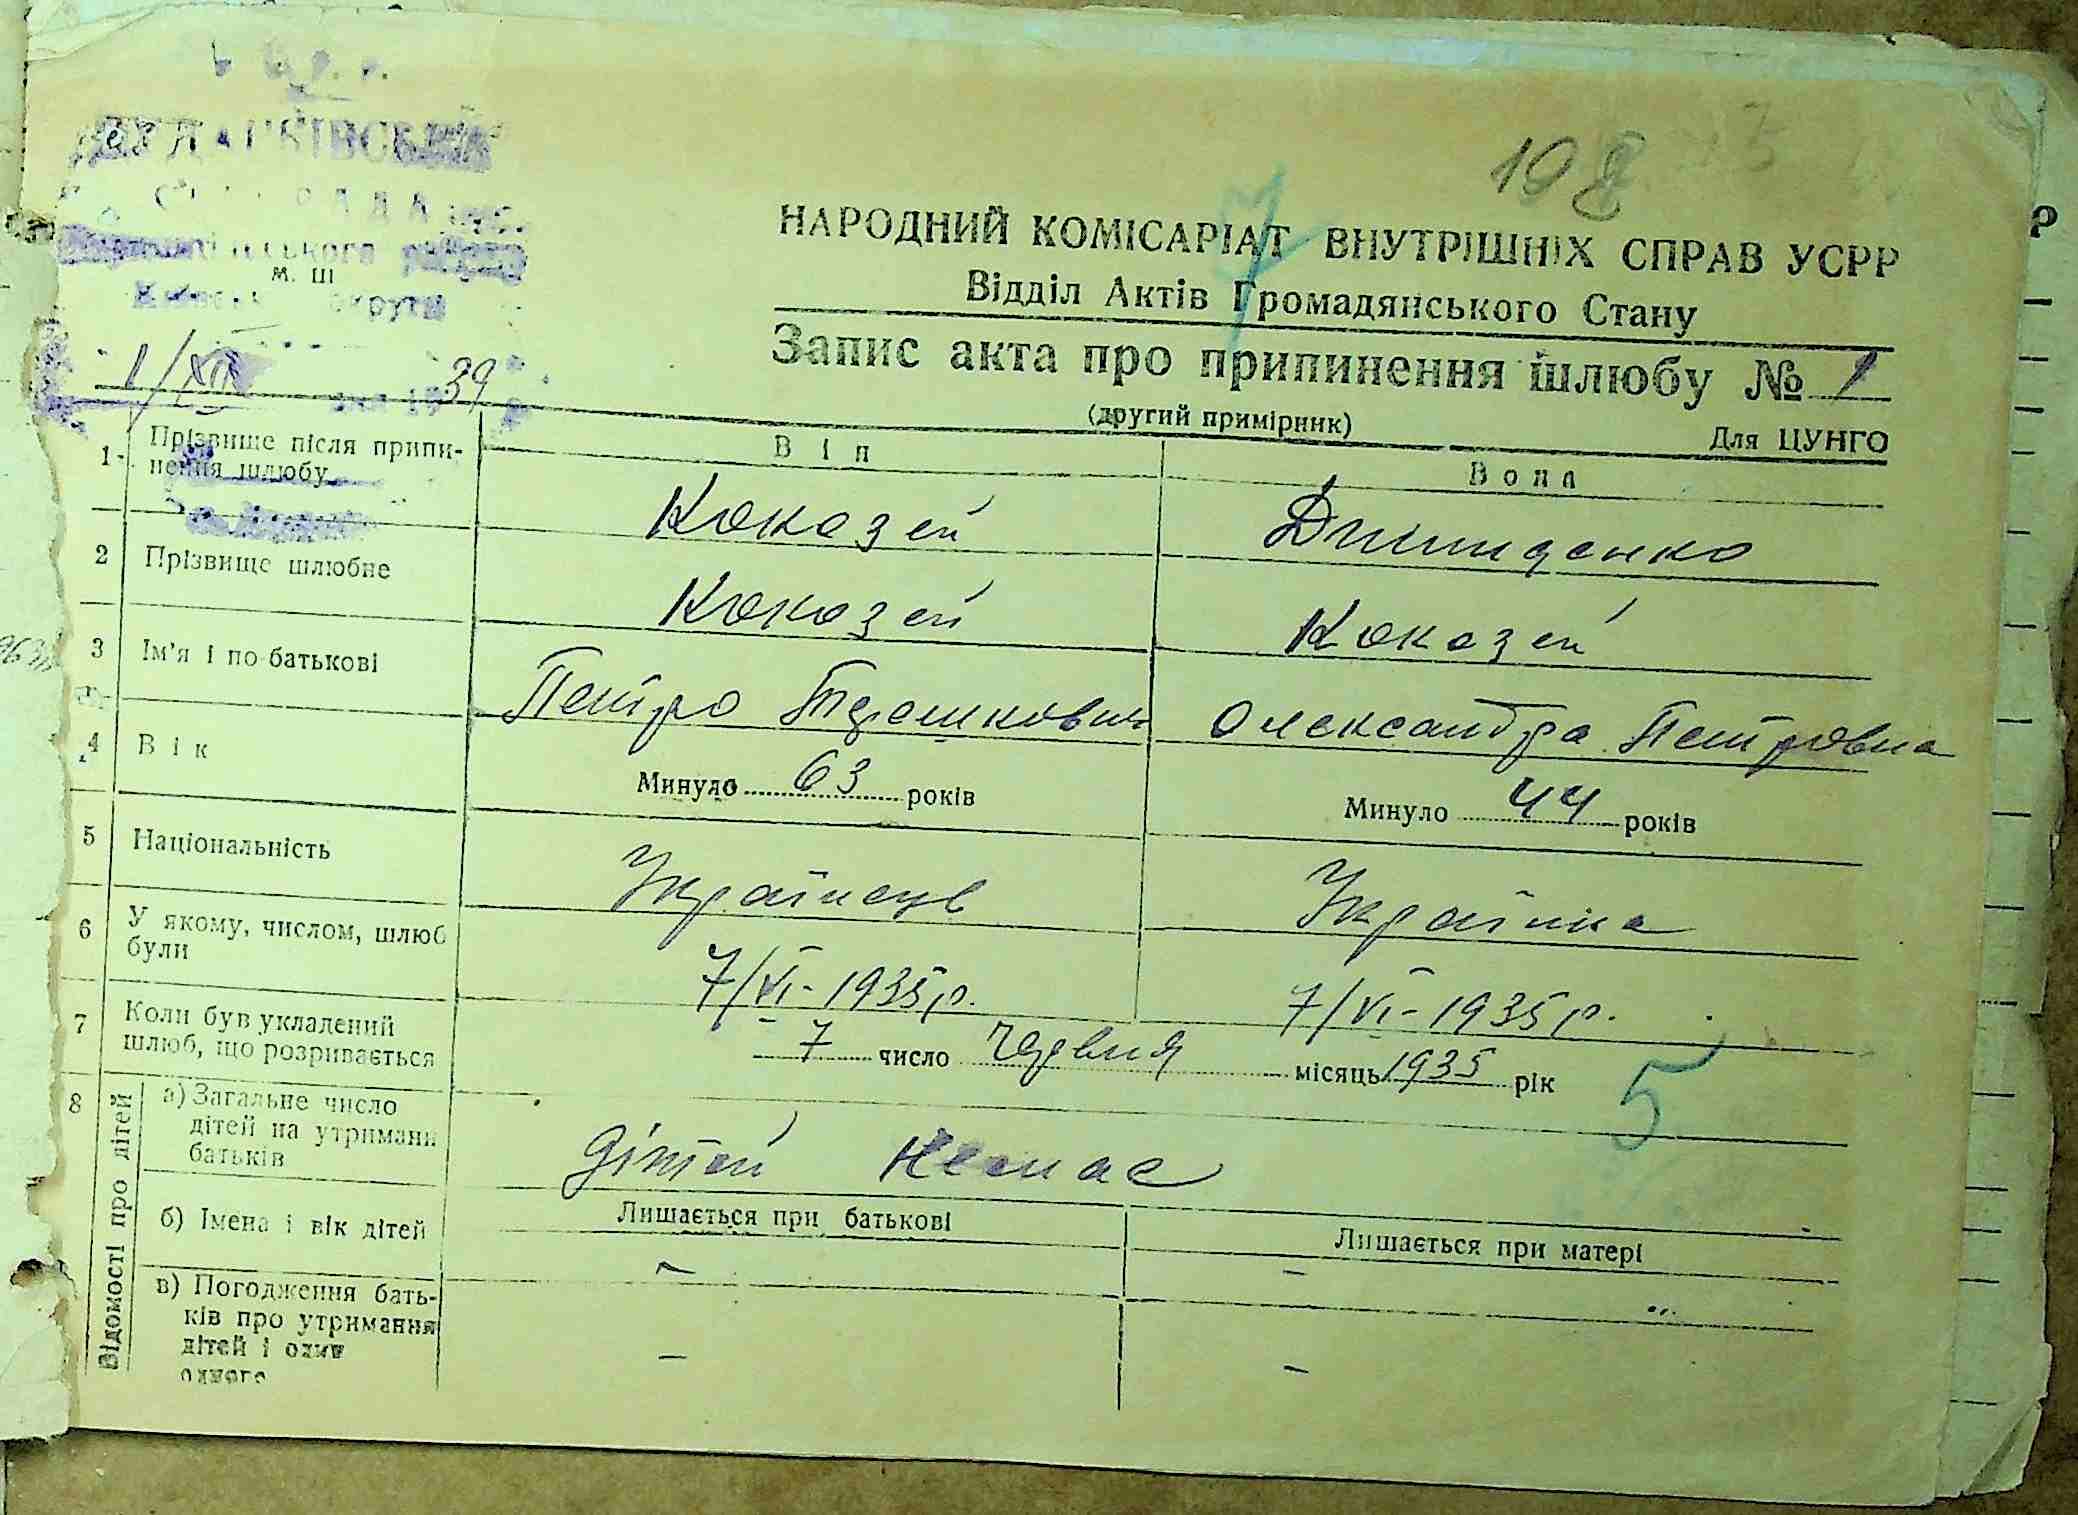 108
НАРОДНИЙ КОМІСАРІАТ ВНУТРІШНІХ СПРАВ УСРР
Відділ Актів Громадянського Стану
Запис акта про припинення шлюбу №
(другий примірник)
Для ЦУНГО
М. Ш
округи
1/XII 1939
1 Прізвище після припи-
нення шлюбу
Він
Вона
Кокозей
2 Прізвище шлюбне
Кокозей
Кокозей
3 Ім'я і по-батькові
Петро
Олександра Петровна
4 Вік
Минуло 63 років
Минуло 44 років
5 Національність
Українець
Українка
6 У якому, числом, шлюб
були
7/VI - 1935 р.
7/VI - 1935 р.
7 Коли був укладений
шлюб, що розривається
7 число червня місяць 1935 рік
5
8 Відомості про дітей
а) Загальне число
дітей на утриманн
батьків
дітей немає
б) Імена і вік дітей
Лишається при батькові
Лишається при матері
– –
в) Погодження бать-
ків про утримання
дітей і один
одного
– –